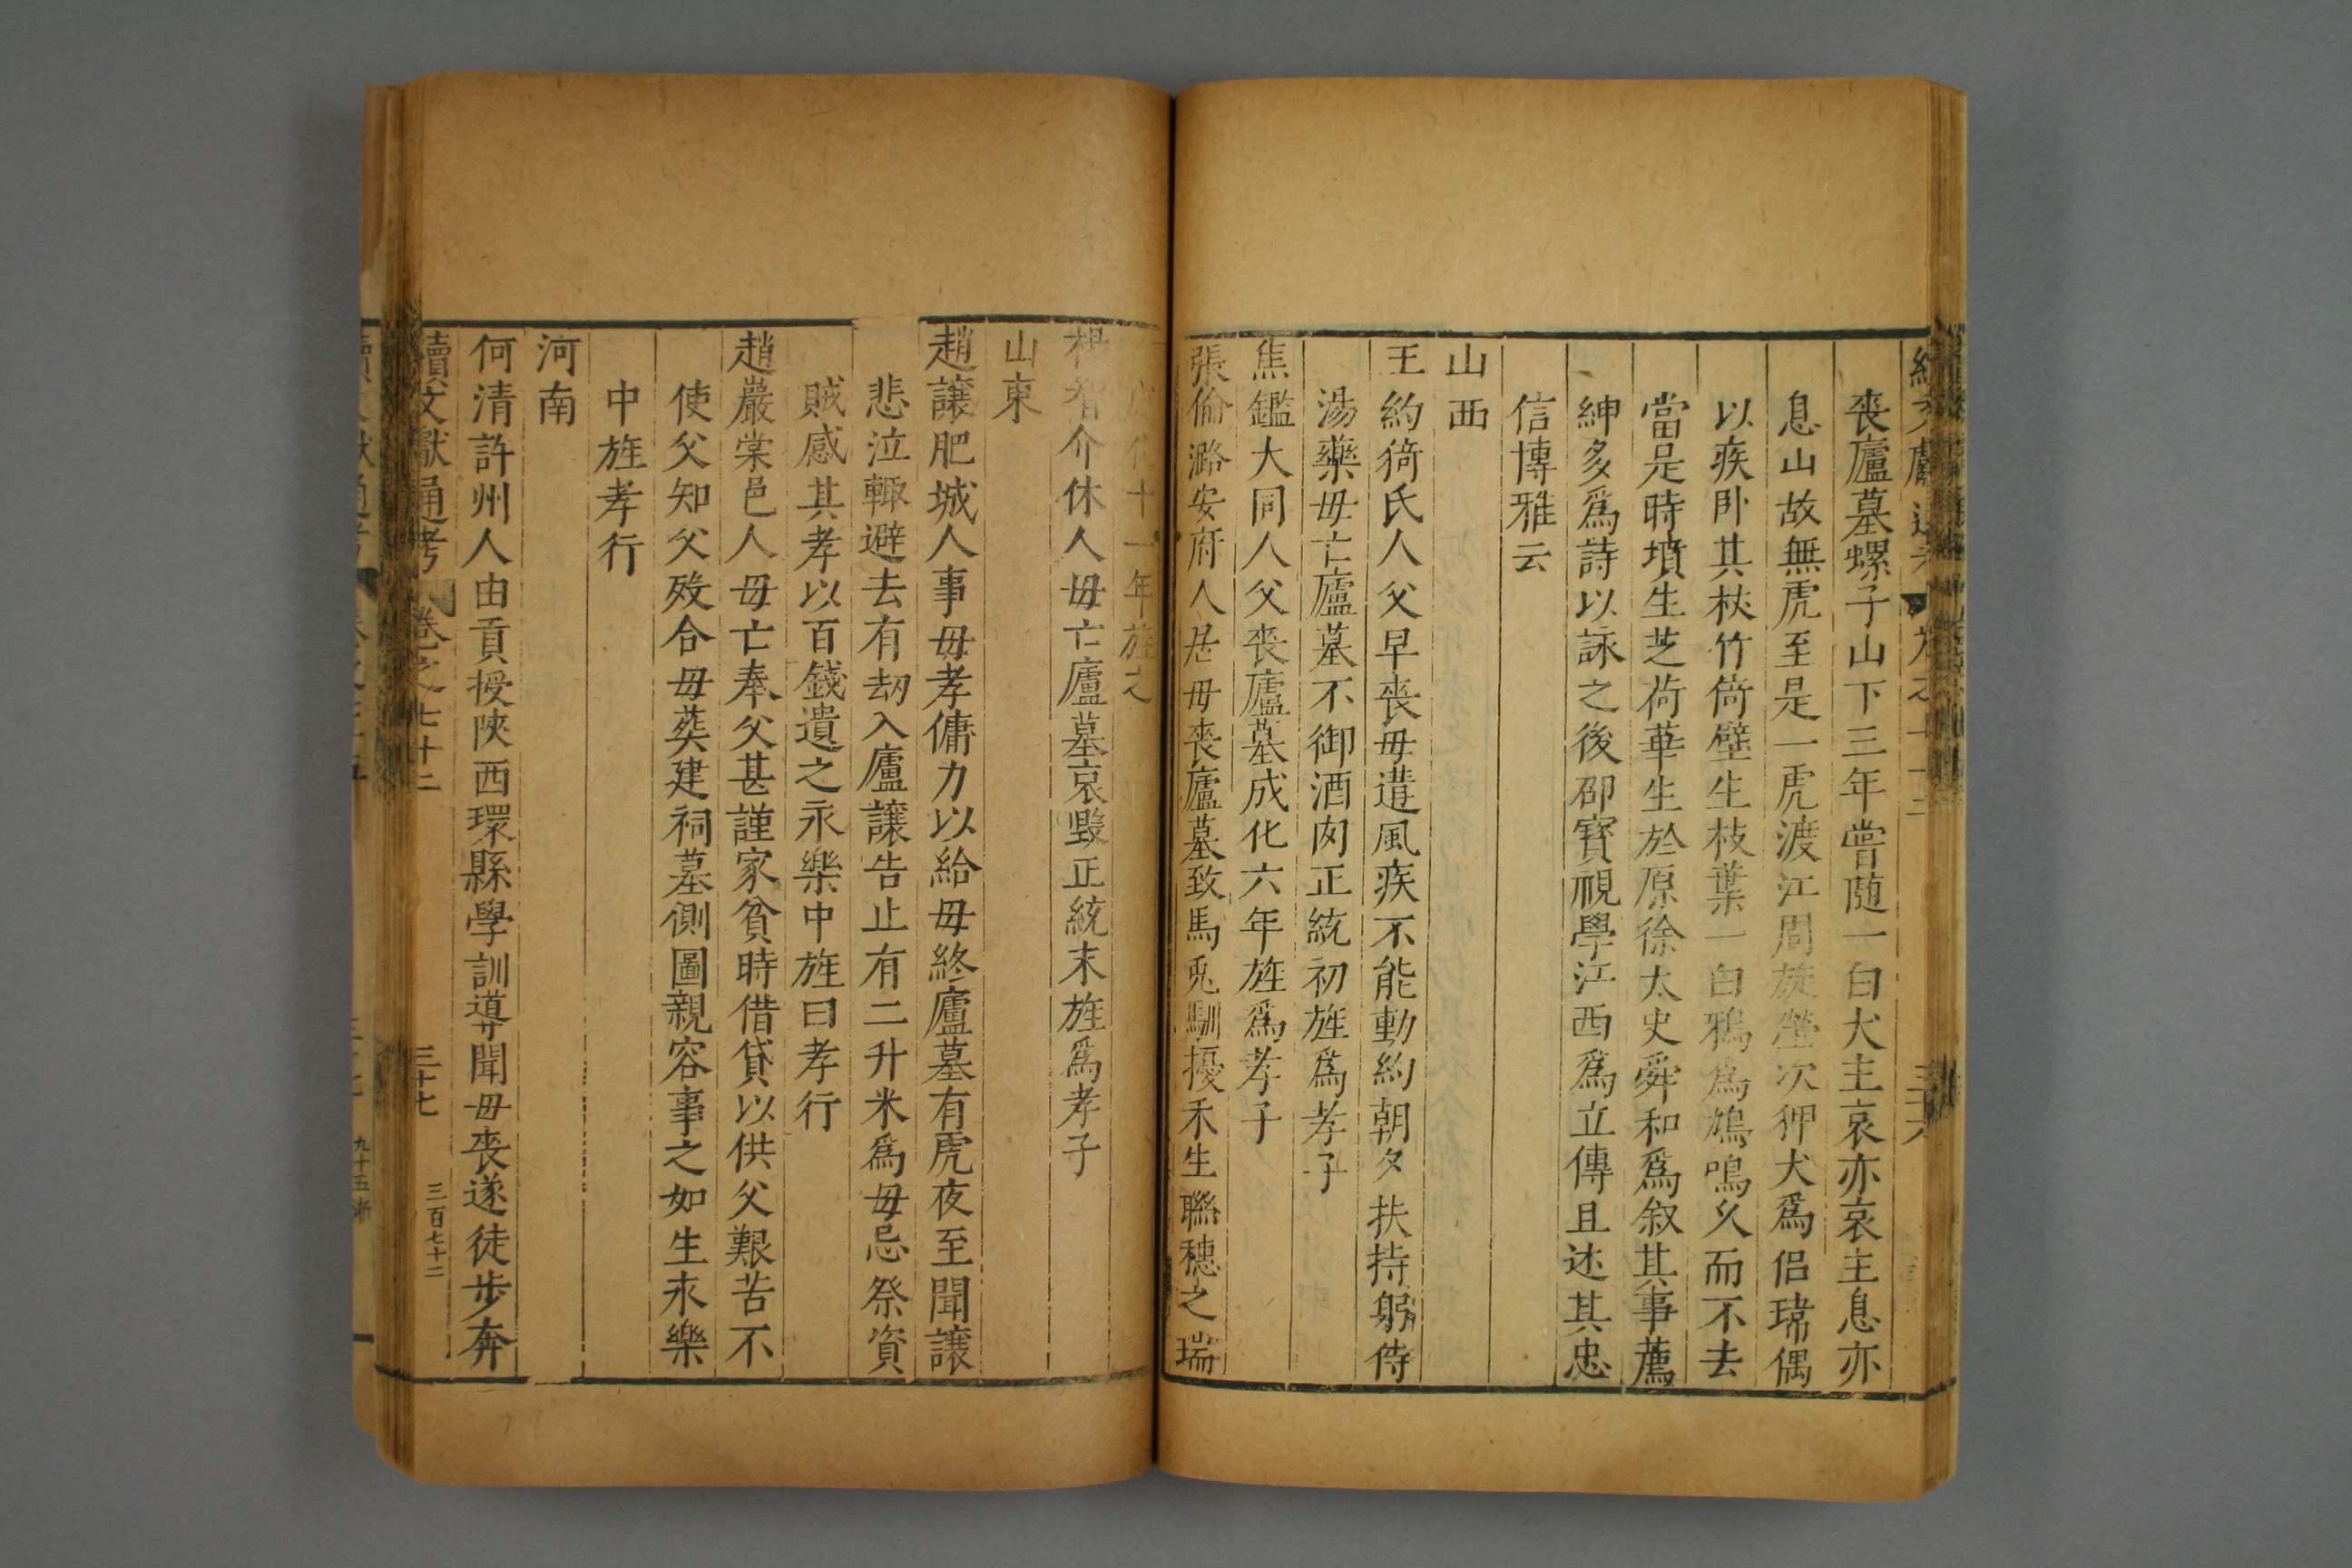 喪廬墓螺子山下三年嘗隨一白犬主哀亦哀主息亦
息山故無虎至是一虎渡江周旋塋次狎犬爲侣瑺偶
以疾卧其杖竹倚壁生枝葉一白鴉爲鳩鳴久而不去
當是時墳生芝荷華生於原徐太史舜和爲叙其事薦
紳多爲詩以詠之後邵寳視學江西爲立傳且述其忠
信博雅云
山西
王約猗氏人父早喪毋遘風疾不能動約朝夕扶持躬侍
湯藥毋亡廬墓不御酒肉正統初旌爲孝子
焦鑑大同人父喪廬墓成化六年旌爲孝子
張倫潞安府人居毋喪廬墓致馬兎馴擾禾生聯穗之瑞
十一年旌之
楊智介休人毋亡廬墓哀毀正統末旌爲孝子
山東
趙讓肥城人事毋孝傭力以給毋終廬墓有虎夜至聞讓
悲泣輒避去有刼入廬讓告止有二升米爲毋忌祭資
賊感其孝以百錢遺之永樂中旌曰孝行
趙嚴棠邑人毋亡奉父甚謹家貧時借貸以供父艱苦不
使父知父歿合毋葬建祠墓側圖親容事之如生永樂
中旌孝行
河南
何清許州人由貢授陝西環縣學訓導聞毋喪遂徒步奔
續文獻通考 卷之七十二 三十七 三百七十二